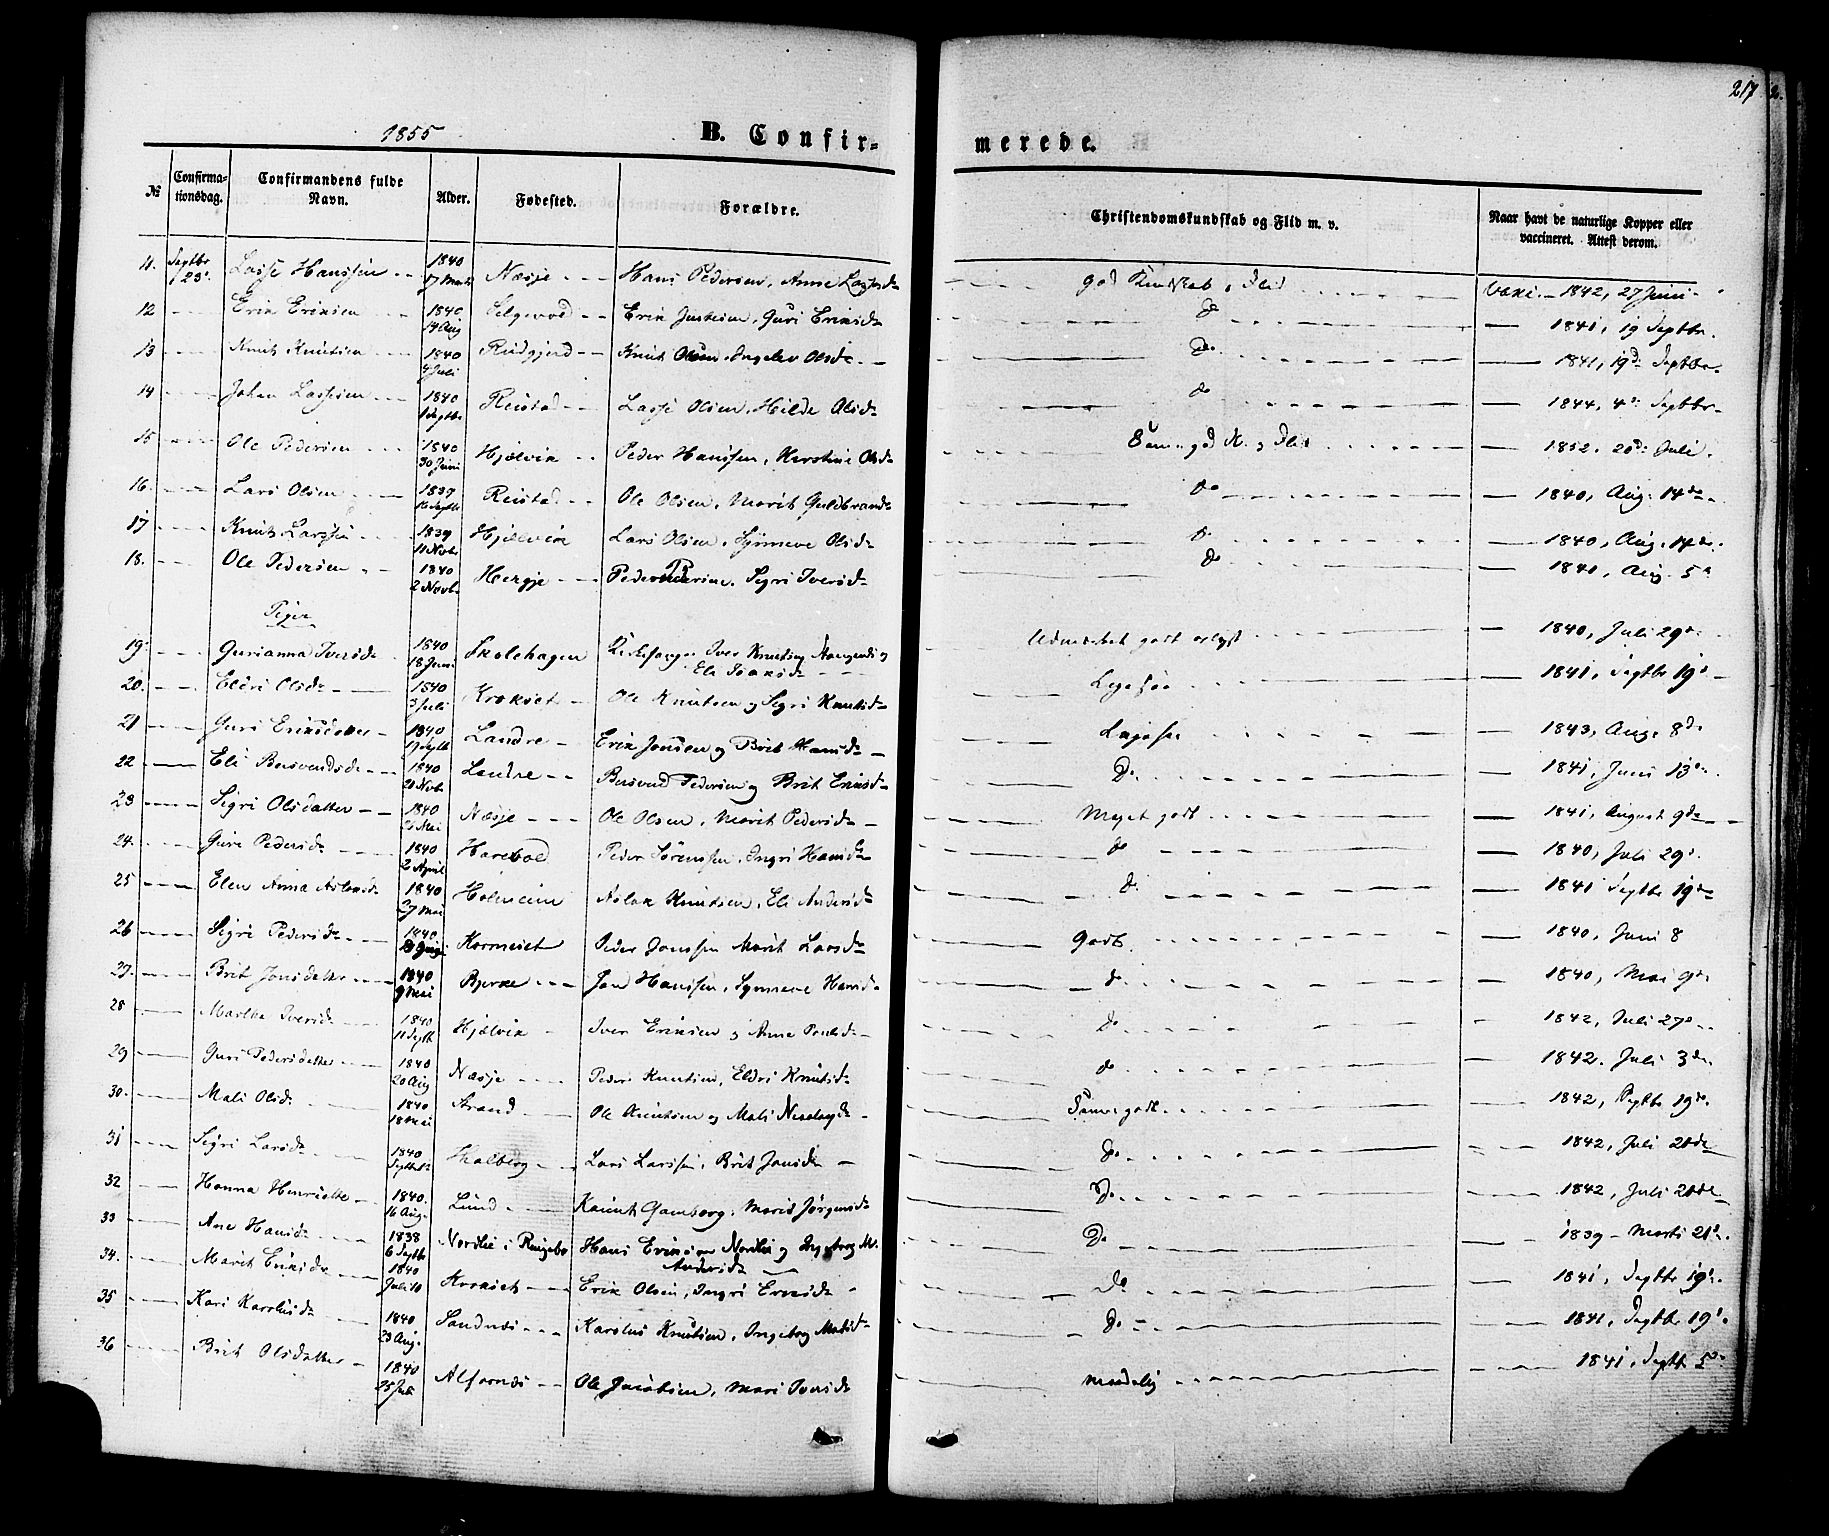 217
1855 B. Confir- merede.
№ Confirma-tionsdag. Confirmandens fulde Navn. Alder. Fødested. Forældre. Christendomskundskab og Flid m. v. Naar havt de naturlige Kopper eller vaccineret. Attest derom.
11. Septbr 23d Lasse Hanssen 1840 Næsje Hans Pedersen, Anne Lassesd. god Kundskab, Flid Vaxi. 1842, 27 Juni
12 Erik Eriksen 1840 14 Aug Erik Guri Eriksd. do 1841, 19 Septbr.
13 Knut Knutsen 1840 4 Juli Knut Olsen, Ingelev Olsd. Do. 1841, 19d Septbr.
14 Johan Lassesen 1840 1 Septbr Reistad Lasse Olsen, Hilde Olsd. do 1844, 4d Septbr
15 Ole Pedersen 1840 30 Juni Hjelvik Peder Hanssen, Kerstine Olsd. god K. og Flid 1852. 20d Juli.
16. Lars Olsen 1839 16 Septb Reistad Ole Olsen, Marit Guldbrandsd do 1840, Aug. 14de
17 Knut Larssen 1839 11 Novb. Hjelvik Lars Olsen, Synneve Olsd. do 1840, Aug. 14de.
18. Ole Pedersen 1840 2 Novb. Herje Peder Pedersen, Segri Iversd. do 1841, Aug. 5d
Piger
19. Gurianna Iversd. 1840 18 Juni Skolehagen Kirkesanger Iver Knutsen og Eli Isaksd. Udmærket godt oplyst 1840, Juli 29d
20. Eldri Olsd. 1840 3 Juli Krokset Ole Knutsen og Segri Knutsd. Ligesaa 1841, Septbr 19d
21 Guri Eriksdatter 1840 17 Septb Landre Erik Jonsen og Brit Hansd. Ligesaa 1843, Aug. 8de
22 Eli Bersvendsd. 1840 20 Novb. Landre Bersvend Pedersen og Brit Eriksd. Do 1841, Juni 13d.
23 Segri Olsdatter 1840 Mai Næsje Ole Olsen, Marit Pedersd. Meget godt 1841, August 9de
24. Guri Pedersd. 1840 2 April Harebod Peder Sørenssen, Ingri Hansd. do 1840, Juli 29d.
25 Elen Anna Aslaksd. 1840 27 Mai Holmeim Aslak Knutsen, Eli Andersd. do 1841 Septbr 19de
26 Segri Pedersd. 1840 Kormeset Peder Jonssen Marit Larsd. Godt. 1840, Juni 8
27. Brit Jonsdatter 1840 9 Mai Bjerke Jon Hanssen, Synneve Hansd. do 1840, Mai 9d.
28 Marthe Iversd. 1840 11 Septb Hjelvik Iver Eriksen og Anne Paulsd. do 1842, Juli 27d
29 Guri Pedersdatter 1840 20 Aug Næsje Peder Knutsen, Eldri Knutsd. do 1842. Juli 3de
30. Mali Olsd. 1840 18 Mai Strand Ole Knutsen og Mali godt. 1842, Septbr 19de.
31 Segri Larsd. 1840 Skalberg Lars Larssen, Brit Jonsd. Do 1842, Juli 20de
32 Hanna Henriette 1840. 16 Aug. Lund Knut Gamborg, Marit Jørgensd. Do 1842, Juli 20de
33 Ane Hansd. 1838 6 Septb Nordlie i Ringebo Hans Eriksen Nordlie og Ingeborg M. Andersd. Do 1839 Marts 21d.
34. Marit Eriksd. 1840 Juli 10 Krokset Erik Olsen, Ingri Eriksd. Do 1841, Septbr 19d.
35 Kari Karolusd. 1840 23 Aug. Sandnæs Karolus Knutsen, Ingeborg Matsd. Do 1841, Septbr 19d.
36 Brit Olsdatter 1840 25 Juli Alfarnæs Ole Jacobsen, Mari Iversd. maadelig 1841, Septbr 5d